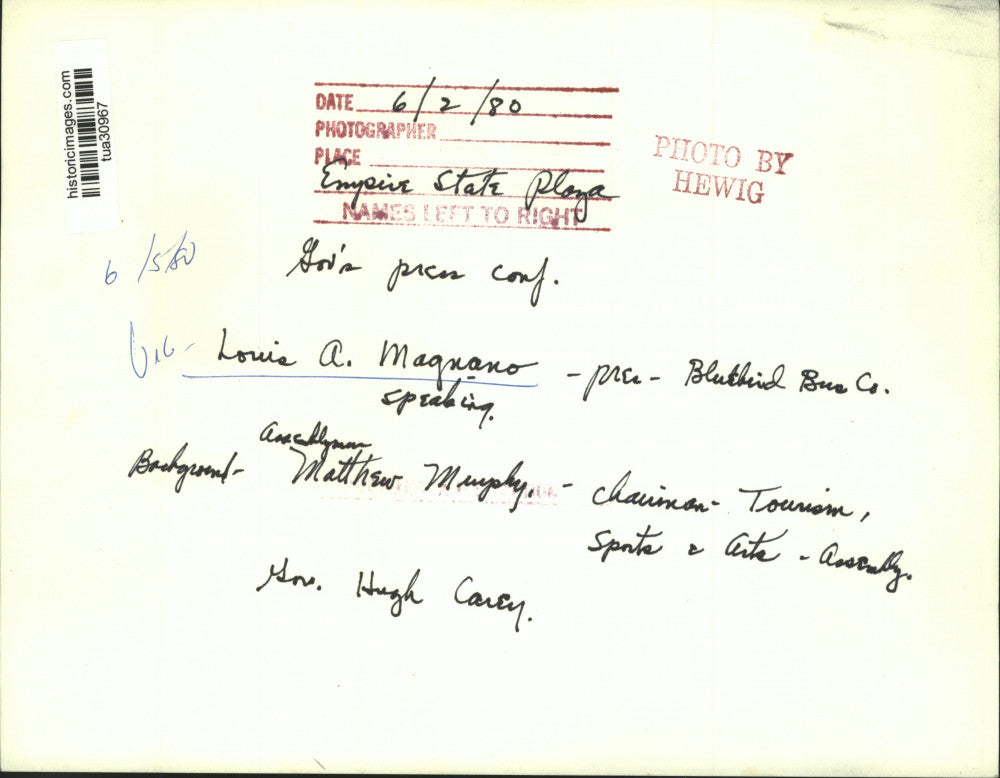 historicimages.com
tua30967
DATE 6/2/80
PHOTOGRAPHER
PLACE
Empire State Plaza
NAMES LEFT TO RIGHT
PHOTO BY
HEWIG
Gov's press conf.
Louis A. Magnano - pres - Bluebird Bus Co.
speaking.
Assemblyman
Background - Matthew Murphy, - chairman - Tourism,
Sports & Arts - Assembly.
Gov. Hugh Carey.